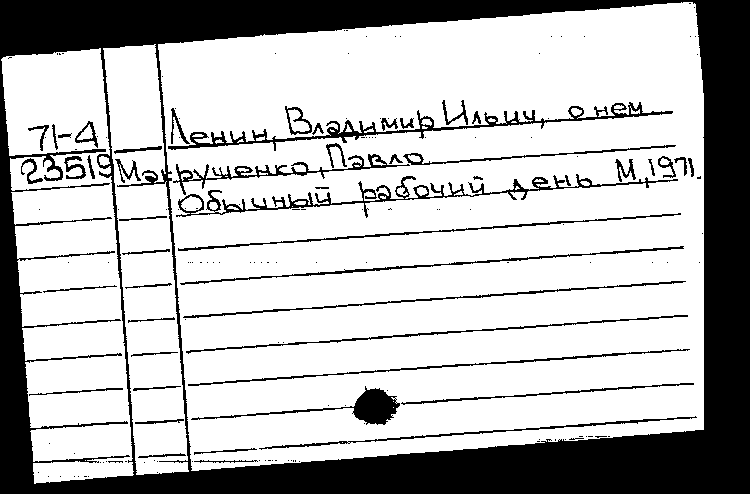 71-4 Ленин, Владимир Ильич, о нем
23519 Макрушенко, Павло
Обычный рабочий день М., 1971.